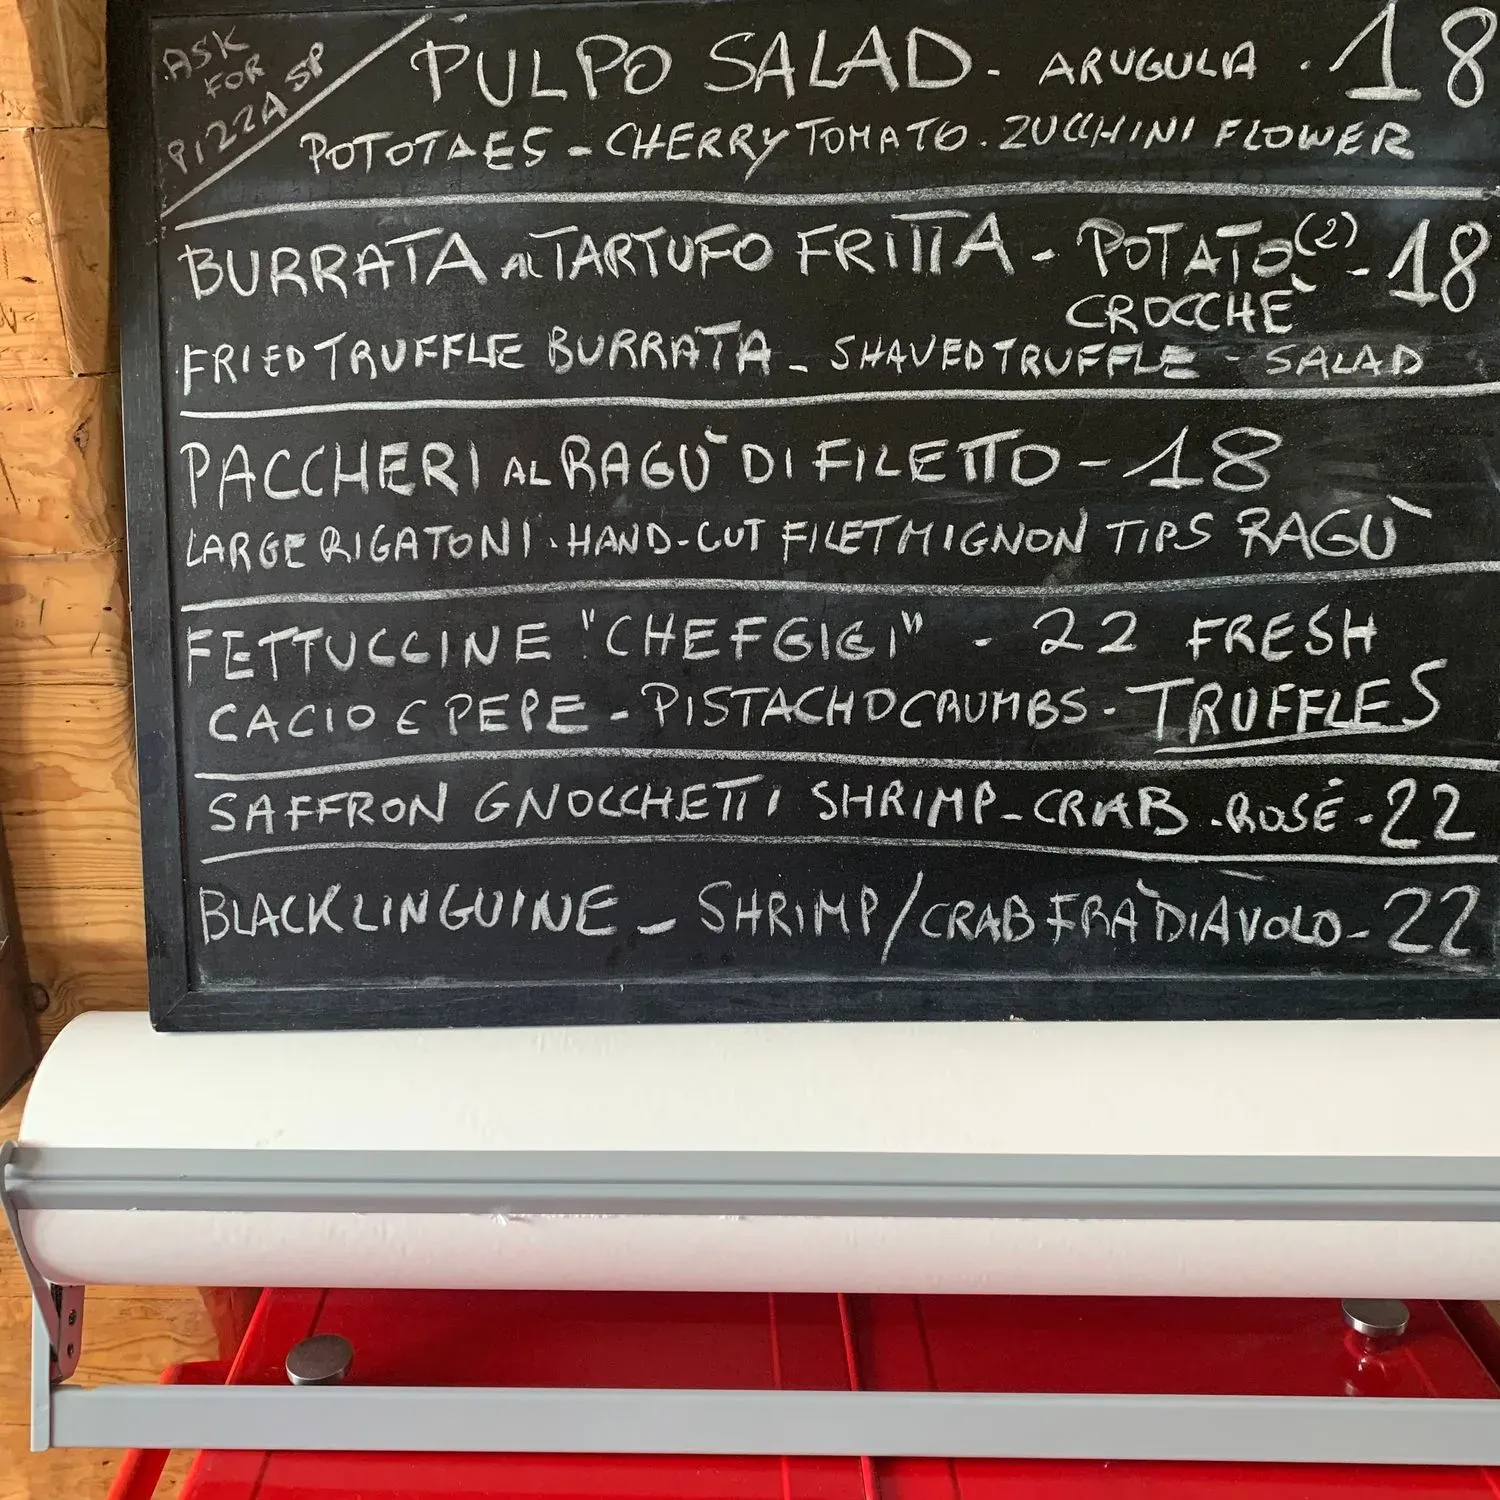 ASK
FOR
PIZZA SP
PULPO SALAD - ARUGULA . 18
POTOTAES - CHERRY TOMATO . ZUCCHINI FLOWER
BURRATA AL TARTUFO FRITTA - POTATO (2) - 18
CROCCHÈ
FRIED TRUFFLE BURRATA - SHAVED TRUFFLE - SALAD
PACCHERI AL RAGÙ DI FILETTO - 18
LARGE RIGATONI . HAND-CUT FILET MIGNON TIPS RAGÙ
FETTUCCINE "CHEF GIGI" - 22 FRESH
CACIO E PEPE - PISTACHO CRUMBS - TRUFFLES
SAFFRON GNOCCHETTI SHRIMP - CRAB . ROSÉ - 22
BLACK LINGUINE - SHRIMP/CRAB FRÀ DIAVOLO - 22